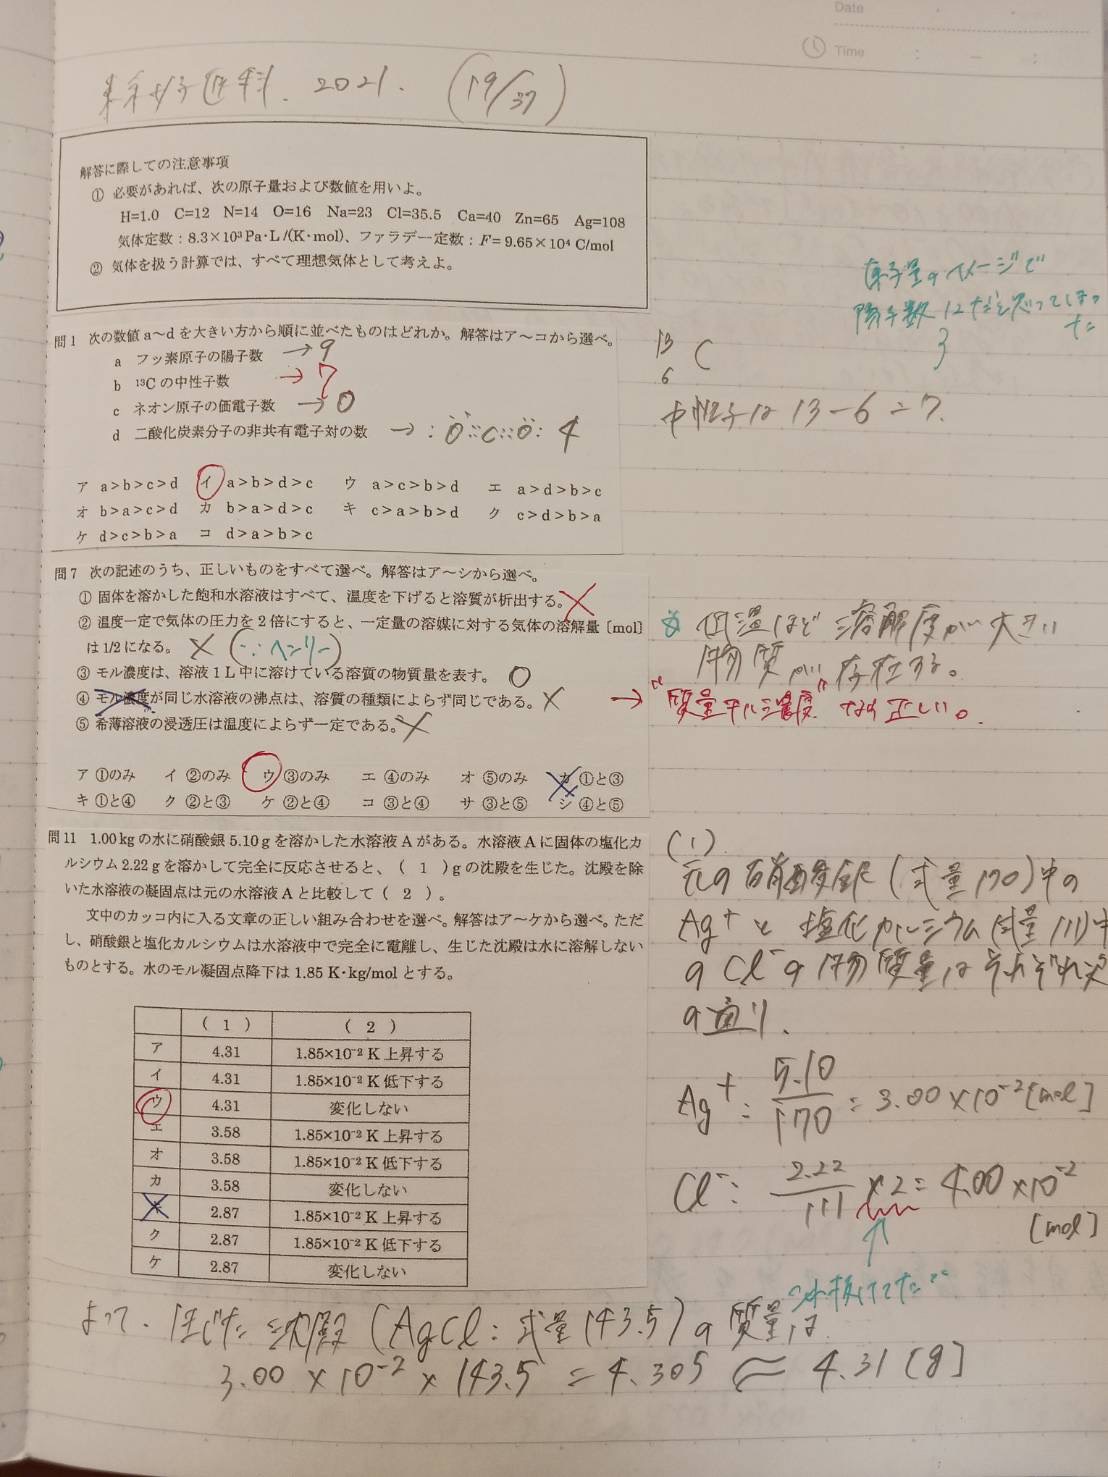 Date
Time
2021. (19/37)
解答に際しての注意事項
① 必要があれば、次の原子量および数値を用いよ。
H=1.0 C=12 N=14 O=16 Na=23 Cl=35.5 Ca=40 Zn=65 Ag=108
気体定数：8.3×10³Pa･L/(K･mol)、ファラデー定数：F＝9.65×10⁴ C/mol
② 気体を扱う計算では、すべて理想気体として考えよ。
原子量のイメージで
陽子数 12だと思ってしまっ
た
問1 次の数値 a～d を大きい方から順に並べたものはどれか。解答はア～コから選べ。
a フッ素原子の陽子数 → 9
b ¹³C の中性子数 → 7
c ネオン原子の価電子数 → 0
d 二酸化炭素分子の非共有電子対の数 → :Ö::C::Ö: 4
13
6 C
中性子は 13-6=7.
ア a>b>c>d イ a>b>d>c ウ a>c>b>d エ a>d>b>c
オ b>a>c>d カ b>a>d>c キ c>a>b>d ク c>d>b>a
ケ d>c>b>a コ d>a>b>c
問7 次の記述のうち、正しいものをすべて選べ。解答はア～シから選べ。
① 固体を溶かした飽和水溶液はすべて、温度を下げると溶質が析出する。×
② 温度一定で気体の圧力を2倍にすると、一定量の溶媒に対する気体の溶解量〔mol〕
は 1/2 になる。 × (∵ヘンリー)
③ モル濃度は、溶液1L中に溶けている溶質の物質量を表す。 ○
④ モル濃度が同じ水溶液の沸点は、溶質の種類によらず同じである。×
⑤ 希薄溶液の浸透圧は温度によらず一定である。×
低温ほど 溶解度が大きい
物質が存在する。
→ "質量モル濃度" なら正しい。
ア ①のみ イ ②のみ ウ ③のみ エ ④のみ オ ⑤のみ カ ①と③
キ ①と④ ク ②と③ ケ ②と④ コ ③と④ サ ③と⑤ シ ④と⑤
問11 1.00 kg の水に硝酸銀 5.10 g を溶かした水溶液 A がある。水溶液 A に固体の塩化カ
ルシウム 2.22 g を溶かして完全に反応させると、( 1 ) g の沈殿を生じた。沈殿を除
いた水溶液の凝固点は元の水溶液 A と比較して ( 2 )。
文中のカッコ内に入る文章の正しい組み合わせを選べ。解答はア～ケから選べ。ただ
し、硝酸銀と塩化カルシウムは水溶液中で完全に電離し、生じた沈殿は水に溶解しない
ものとする。水のモル凝固点降下は 1.85 K･kg/mol とする。
( 1 ) ( 2 )
ア 4.31 1.85×10⁻² K 上昇する
イ 4.31 1.85×10⁻² K 低下する
ウ 4.31 変化しない
エ 3.58 1.85×10⁻² K 上昇する
オ 3.58 1.85×10⁻² K 低下する
カ 3.58 変化しない
キ 2.87 1.85×10⁻² K 上昇する
ク 2.87 1.85×10⁻² K 低下する
ケ 2.87 変化しない
(1)
元の硝酸銀 (式量170)中の
Ag⁺と 塩化カルシウム(式量111)中
のCl⁻の物質量はそれぞれ次
の通り.
Ag⁺: 5.10/170 = 3.00×10⁻²[mol]
Cl⁻: 2.22/111 ×2 = 4.00×10⁻²
[mol]
↑
これ抜けてた
よって、生じた沈殿 (AgCl: 式量143.5)の質量は
3.00×10⁻²×143.5 = 4.305 ≒ 4.31[g]